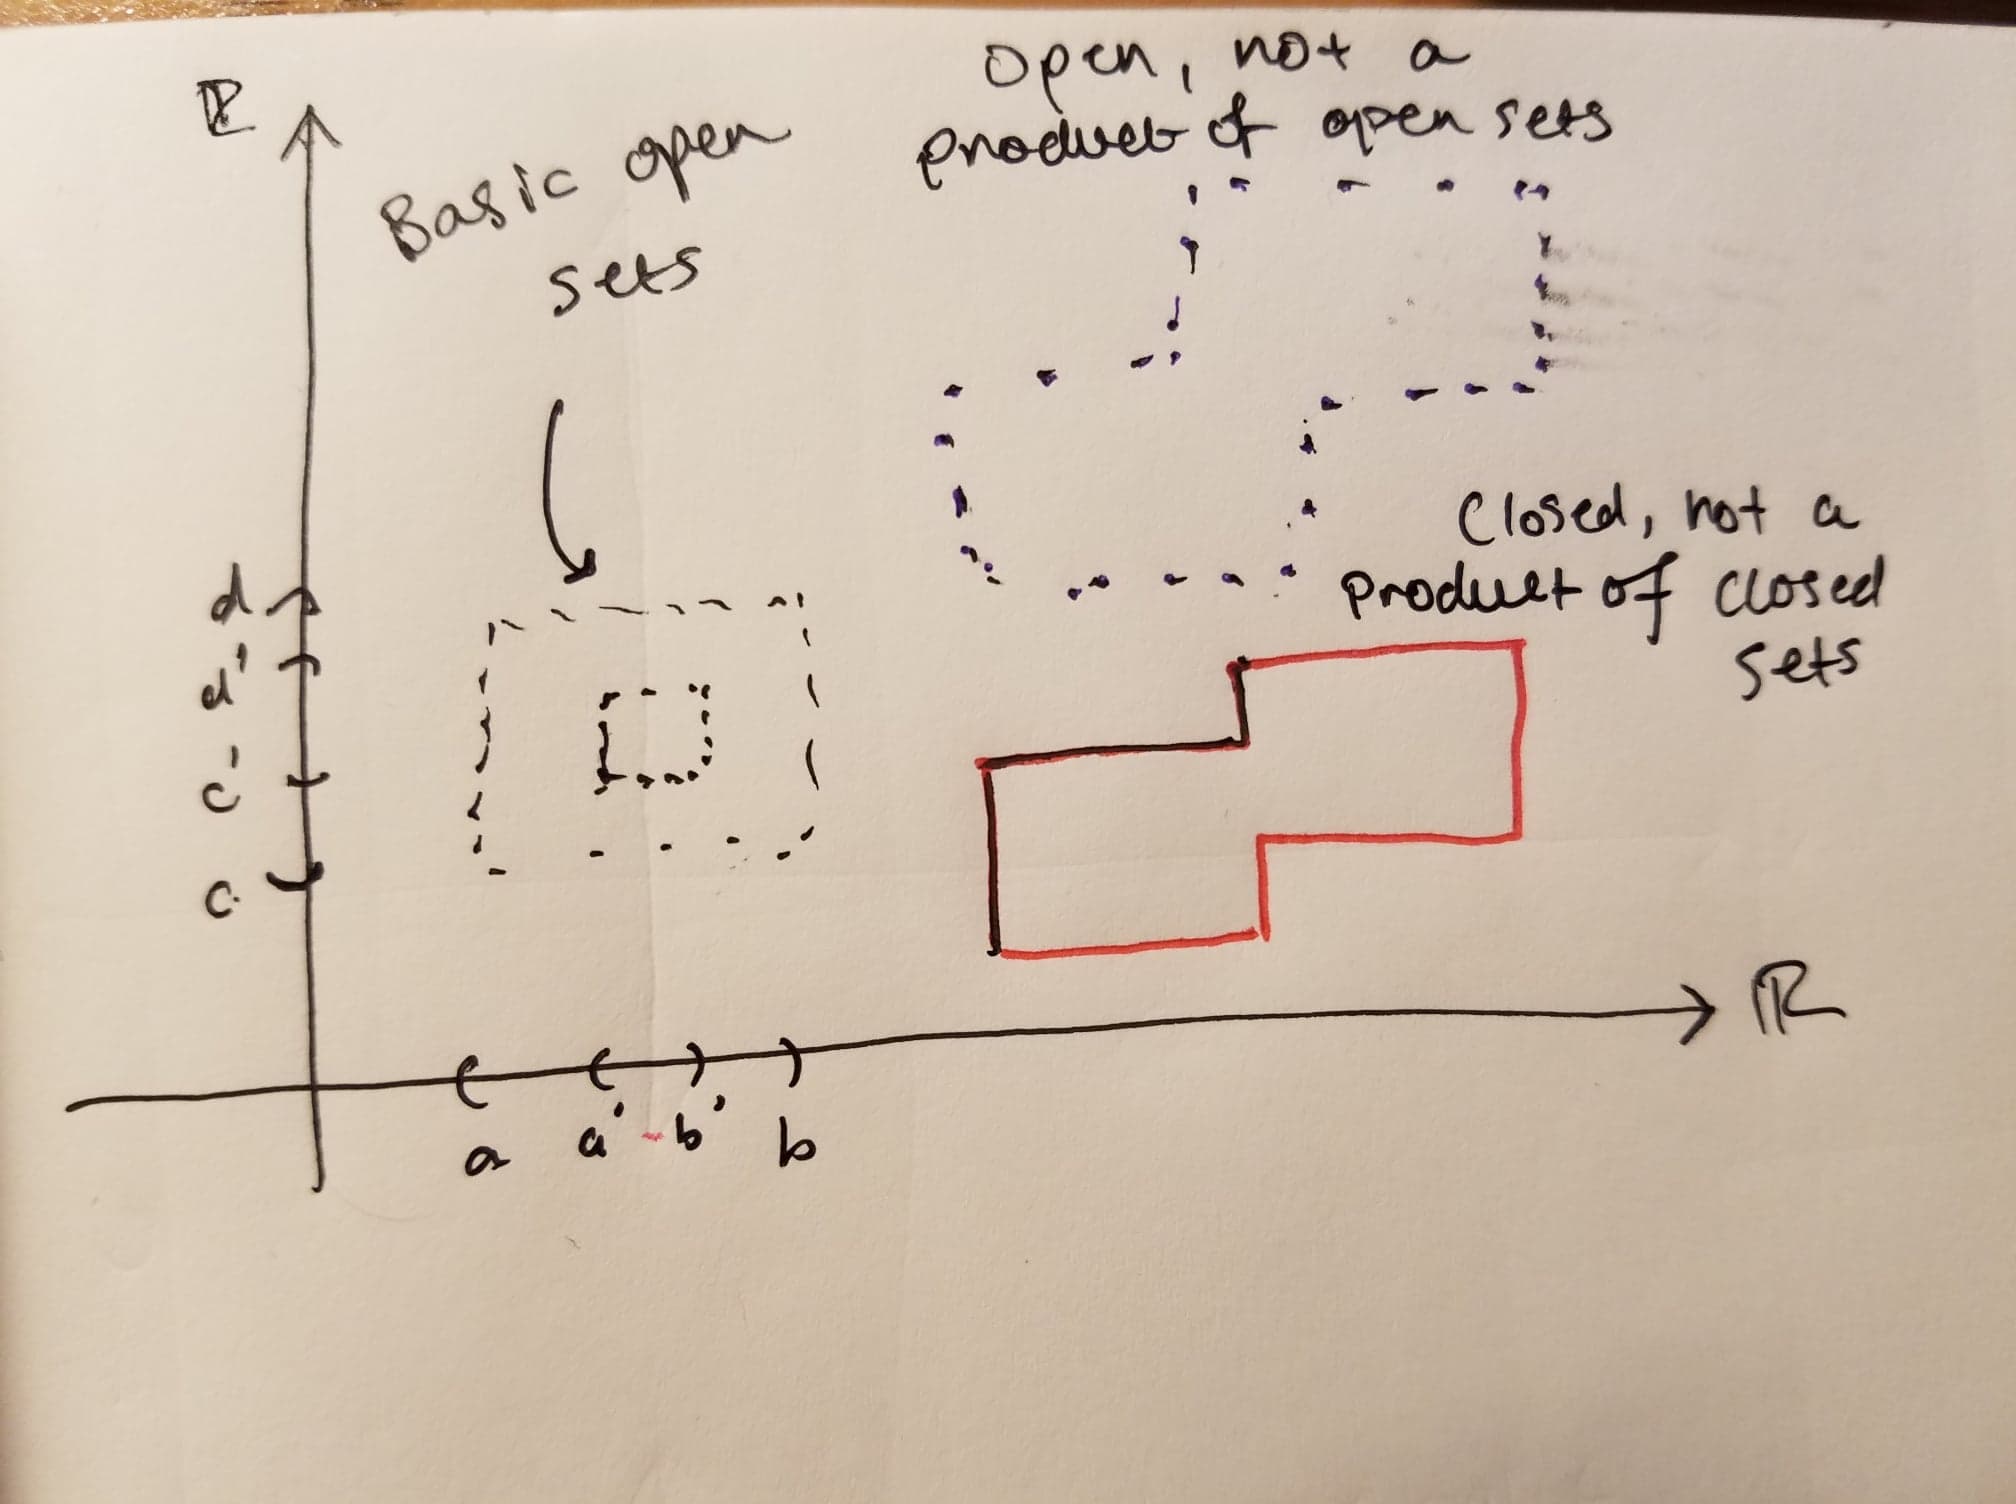 ℝ
Basic open
sets
Open, not a
product of open sets
Closed, not a
product of closed
sets
d
d'
c'
c
ℝ
a a' b' b